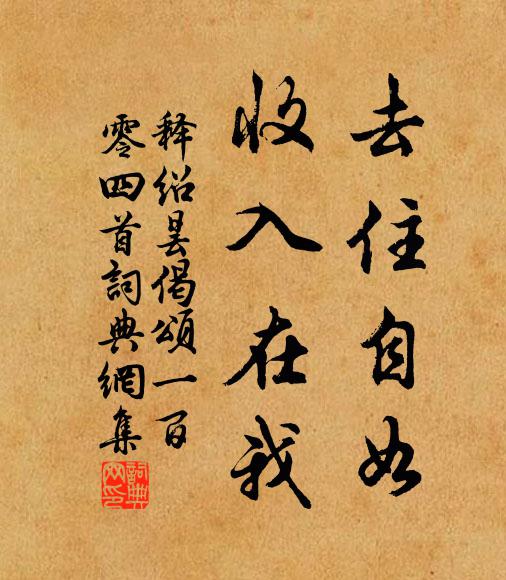 去住自如
收入在我
释绍昙偈頌一百
零四首詞典網集
詞典網印